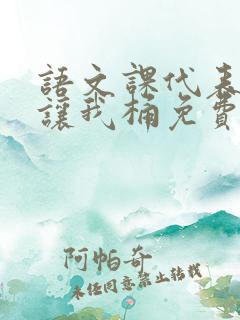 語文課代表
讓我桶免費
阿帕奇
未经同意禁止转载